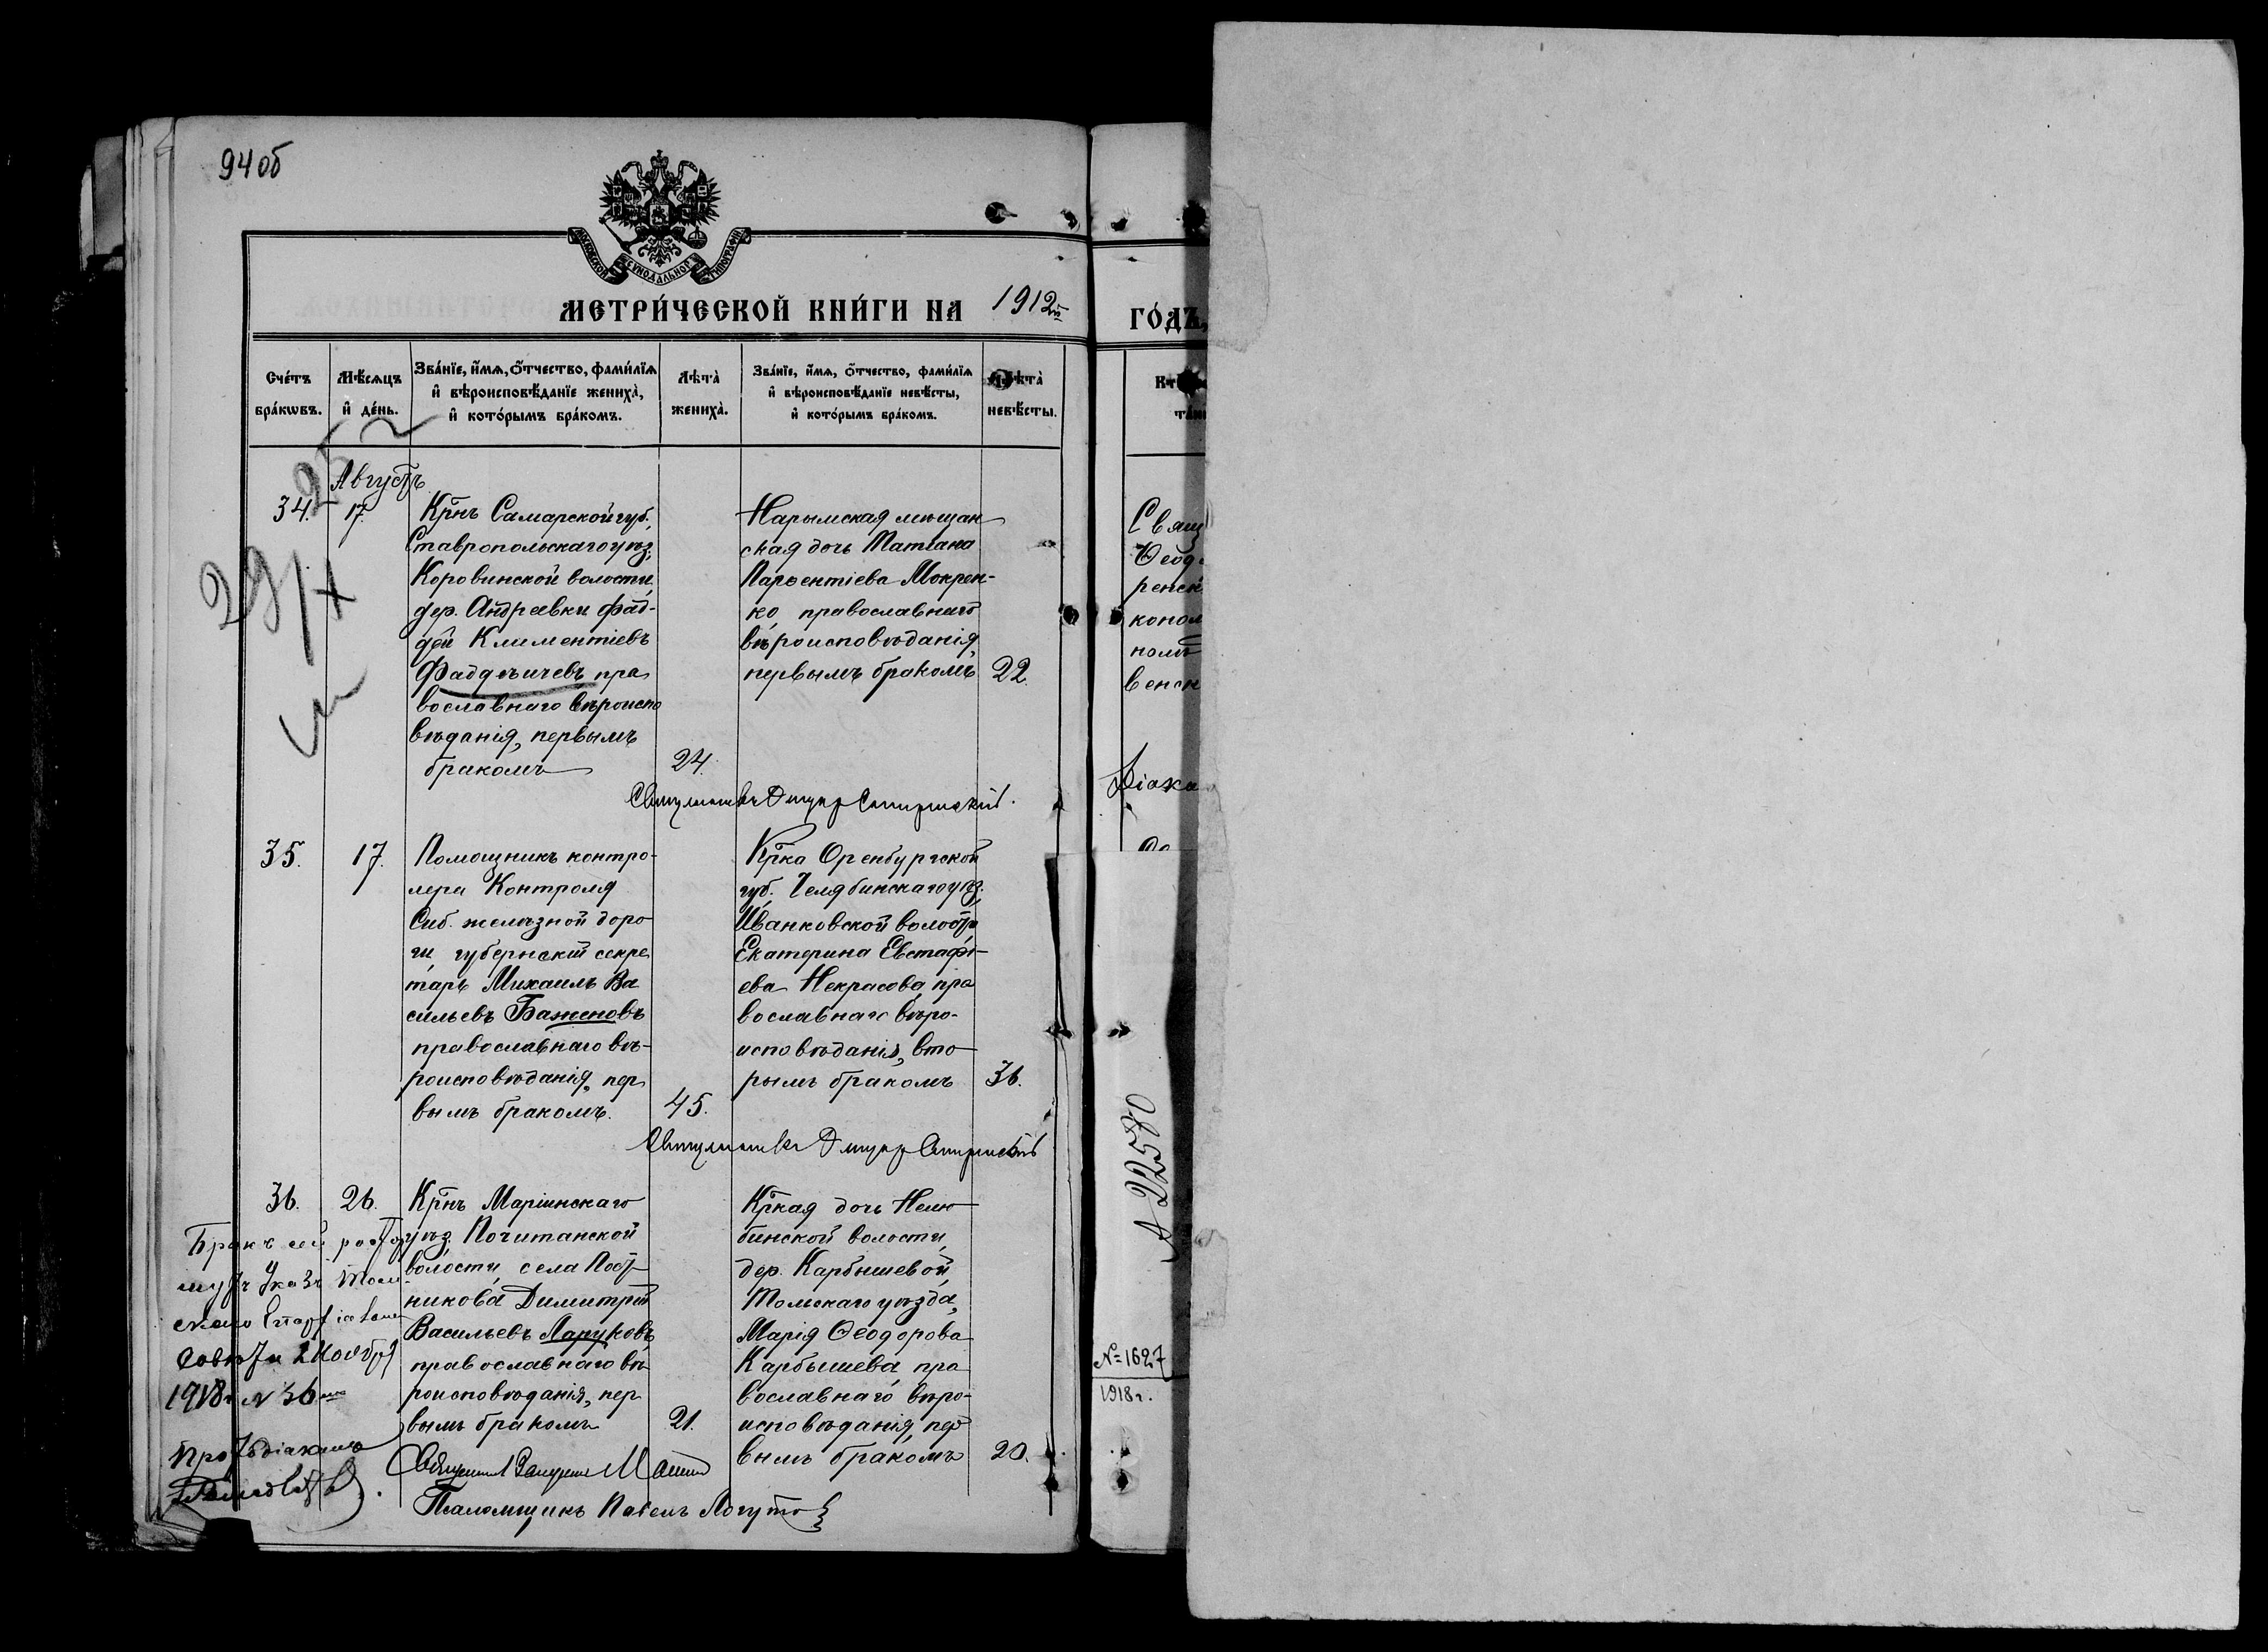 94об
МОСКОВСКОЙ СУНОДАЛЬНОЙ ТИПОГРАФІИ
МЕТРИ́ЧЕСКОЙ КНИ́ГИ НА 1912й
ГО́ДЪ,
Сче́тъ бра́кωвъ.
Мѣ́сяцъ и҆ де́нь.
Зва́нїе, и҆́мѧ, ѻ҆́тчество, фами́лїѧ и҆ вѣроисповѣ́данїе жениха̀, и҆ кото́рымъ бра́комъ.
Лѣта̀ жениха̀.
Зва́нїе, и҆́мѧ, ѻ҆́тчество, фами́лїѧ и҆ вѣроисповѣ́данїе невѣ́сты, и҆ кото́рымъ бра́комъ.
Лѣта̀ невѣ́сты.
Августъ
34.
17.
Крнъ Самарской губ.,
Ставропольскаго уѣз.,
Коровинской волости,
дер. Андреевки Фад-
дей Климентіевъ
Фаддѣичевъ, пра
вославнаго вѣроиспо
вѣданія, первымъ
бракомъ
24.
Нарымская мѣщан
ская дочь Матрона
Парѳентіева Мокрен-
ко, православнаго
вѣроисповѣданія,
первымъ бракомъ
22
29/X
35.
17.
Помощникъ контро-
лера Контроля
Сиб. желѣзной доро
ги, губернскій секре
тарь Михаилъ Ва
сильевъ Баженовъ
православнаго вѣ-
роисповѣданія, пер
вымъ бракомъ.
45.
Крка Оренбургской
губ. Челябинскаго уѣз.,
Иванковской волости
Екатерина Евстафі-
ева Некрасова, пра
вославнаго вѣро-
исповѣданія, вто
рымъ бракомъ
36.
36.
26.
Крнъ Маріинскаго
уѣз. Почитанской
волости, села Пост
никова Димитрій
Васильевъ Ларуковъ,
православнаго вѣ
роисповѣданія, пер
вымъ бракомъ
21.
Кркая дочь Нелю
бинской волости,
дер. Карбышевой,
Томскаго уѣзда,
Марія Ѳеодорова
Карбышева, пра
вославнаго вѣро-
исповѣданія, пер
вымъ бракомъ
20.
Бракъ сей расторг
Указъ Том-
скаго Епархіальн
Совѣта 2 Ноября
1918 г. № 36
Протодіаконъ
Псаломщикъ Павелъ Логутов
Свящ
Ѳеод
ренск
конол
номъ
венск
Діако
А 22580
№ 1627
1918 г.